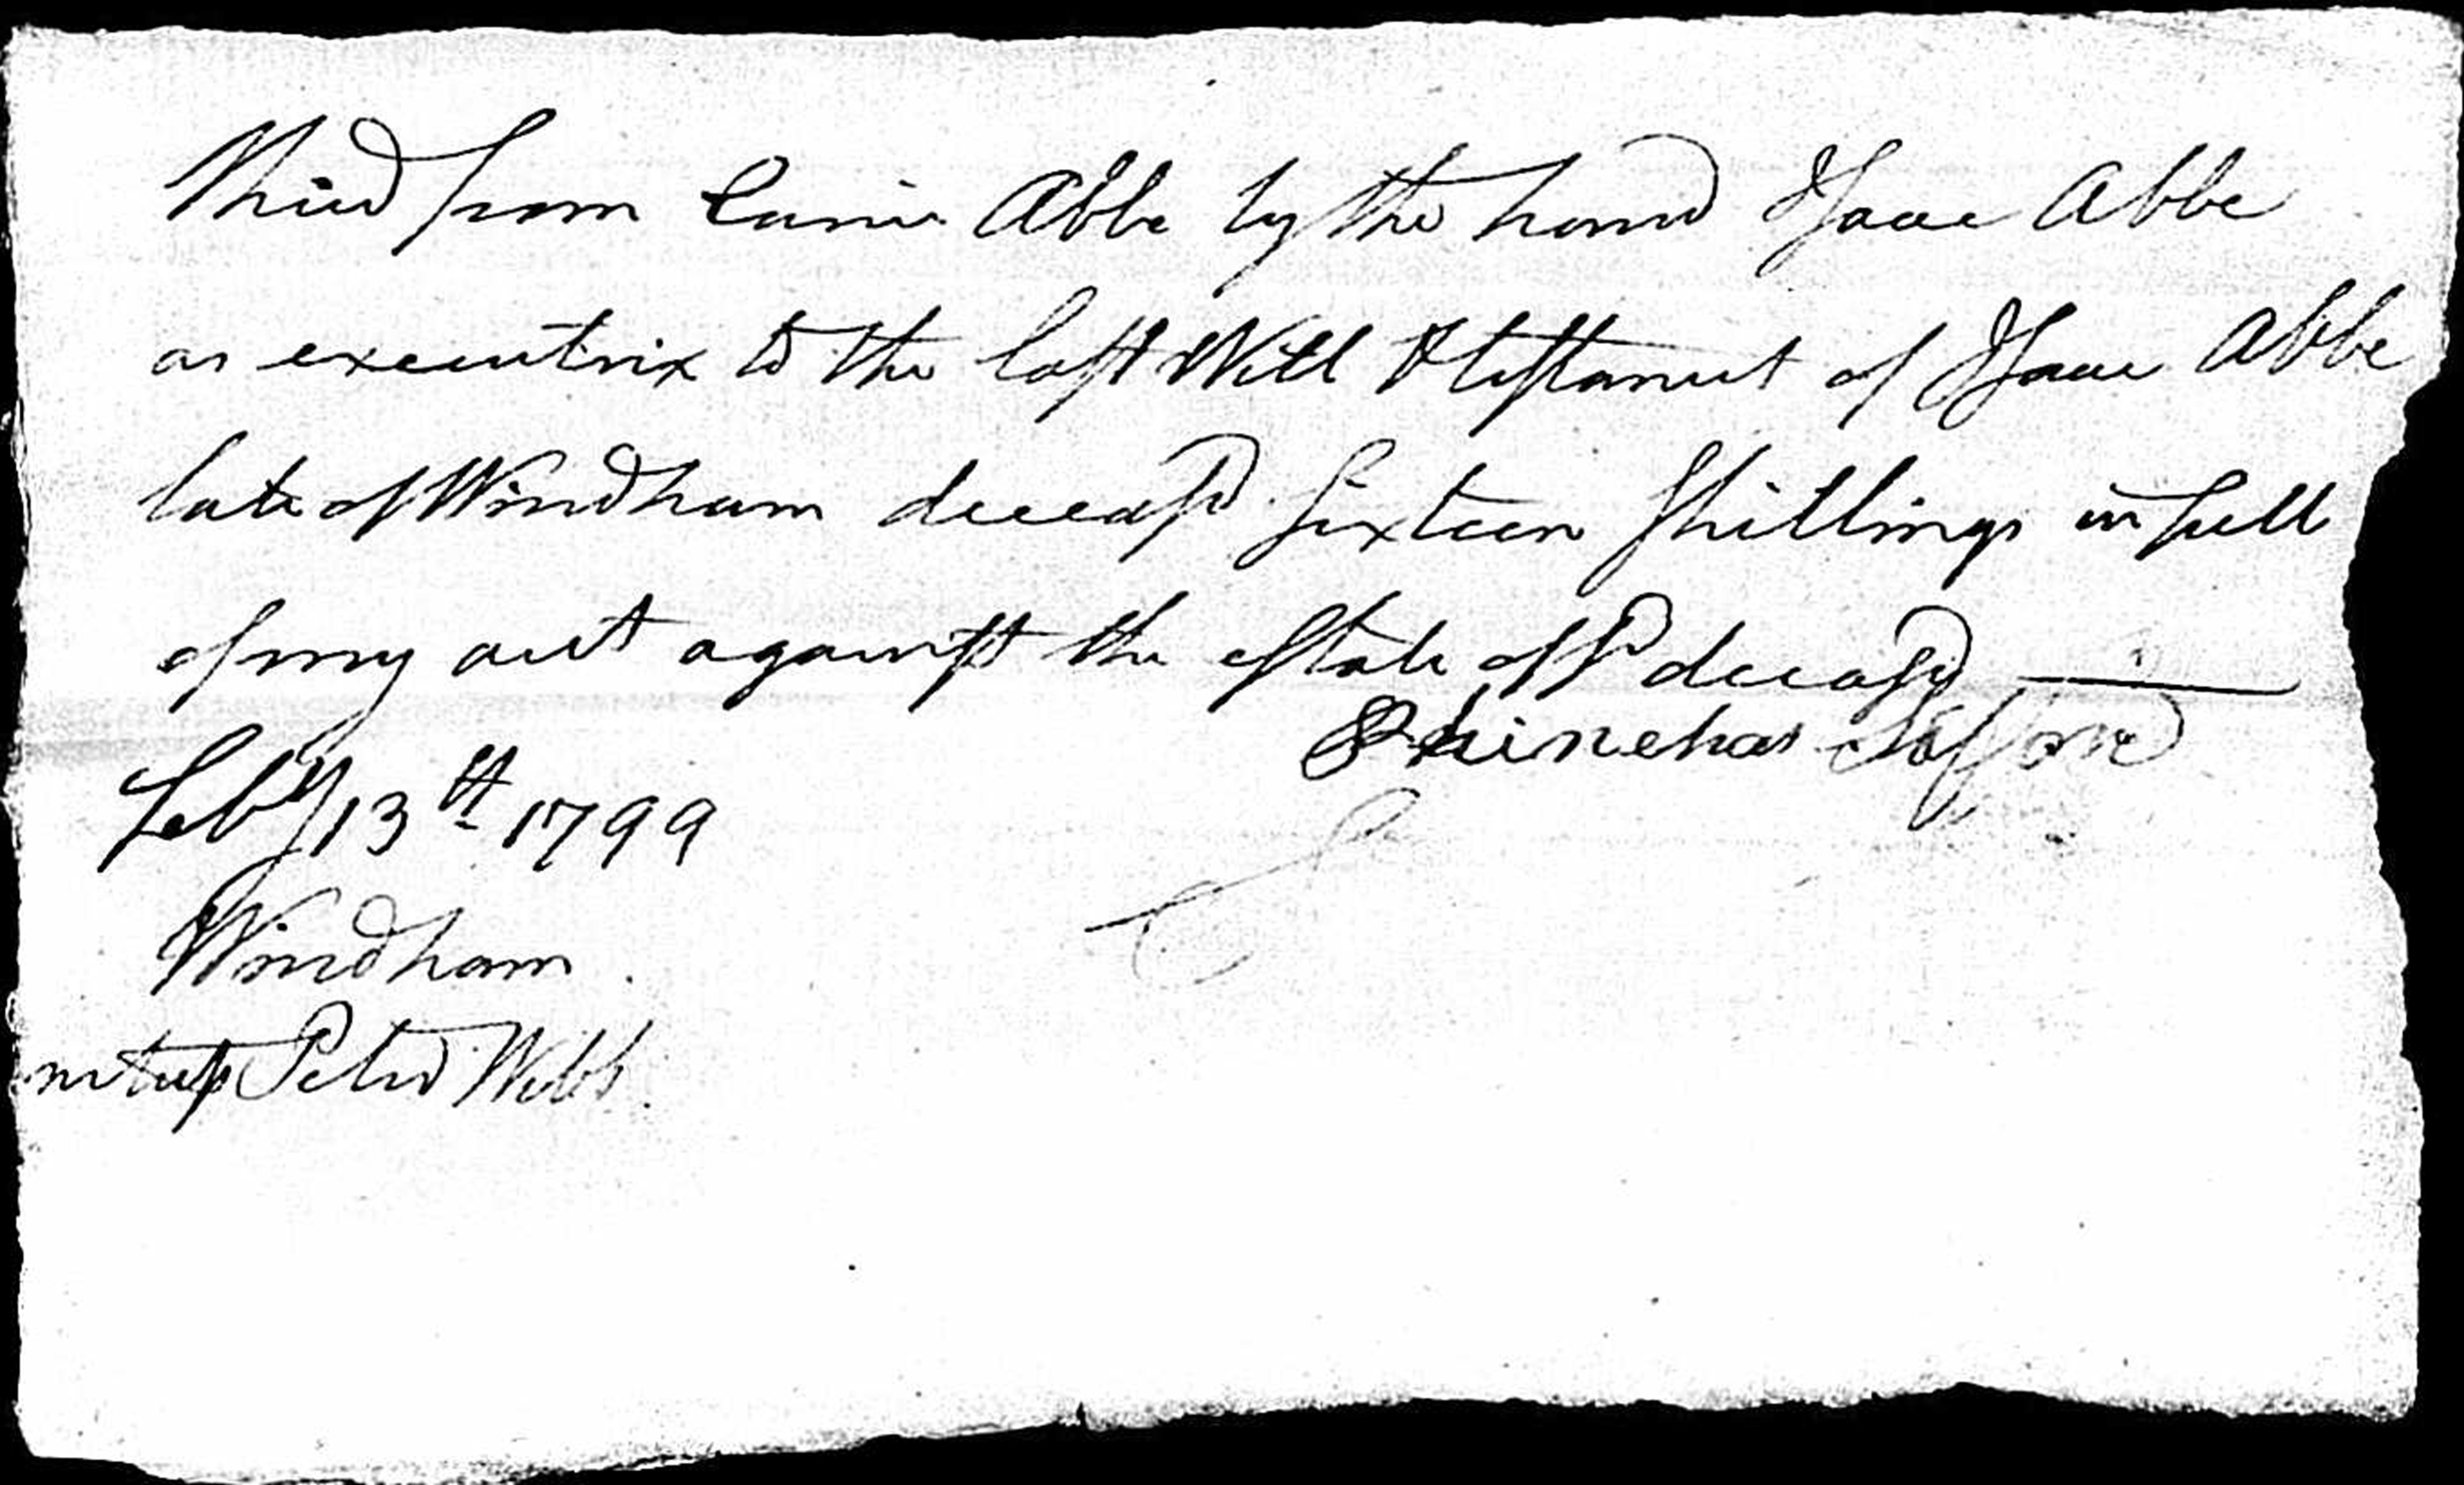 from Eunice Abbe by the hand Isaac Abbe
as executrix to the last Will & testament of Isaac Abbe
late of Windham deceasd sixteen shillings in full
of my acct against the estate of sd deceasd
Phinehas Safford
Feby 13th 1799
Windham
Peter Webb